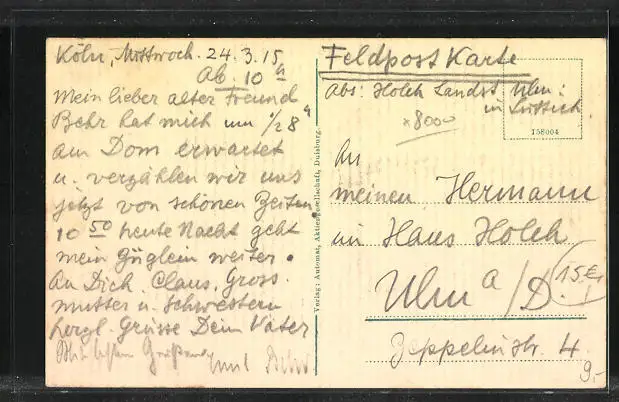 Köln, Mittwoch. 24.3.15
Ab. 10 h
Mein lieber alter Freund
Behr hat mich um 1/2 8 h
am Dom erwartet
u. verzählen wir uns
jetzt von schönen Zeiten
10 50 heute Nacht geht
mein Züglein weiter.
An Dich, Claus, Gross
mutter u. Schwestern
herzl. Grüsse Dein Vater
Verlag: Automat, Aktiengesellschaft, Duisburg.
Feldpost Karte
Abs: Holch Landst Ulm:
in Lüttich
*8000
158004
An
meinen Hermann
im Haus Holch
Ulm a/D.
15€
Zeppelinstr. 4
9.-